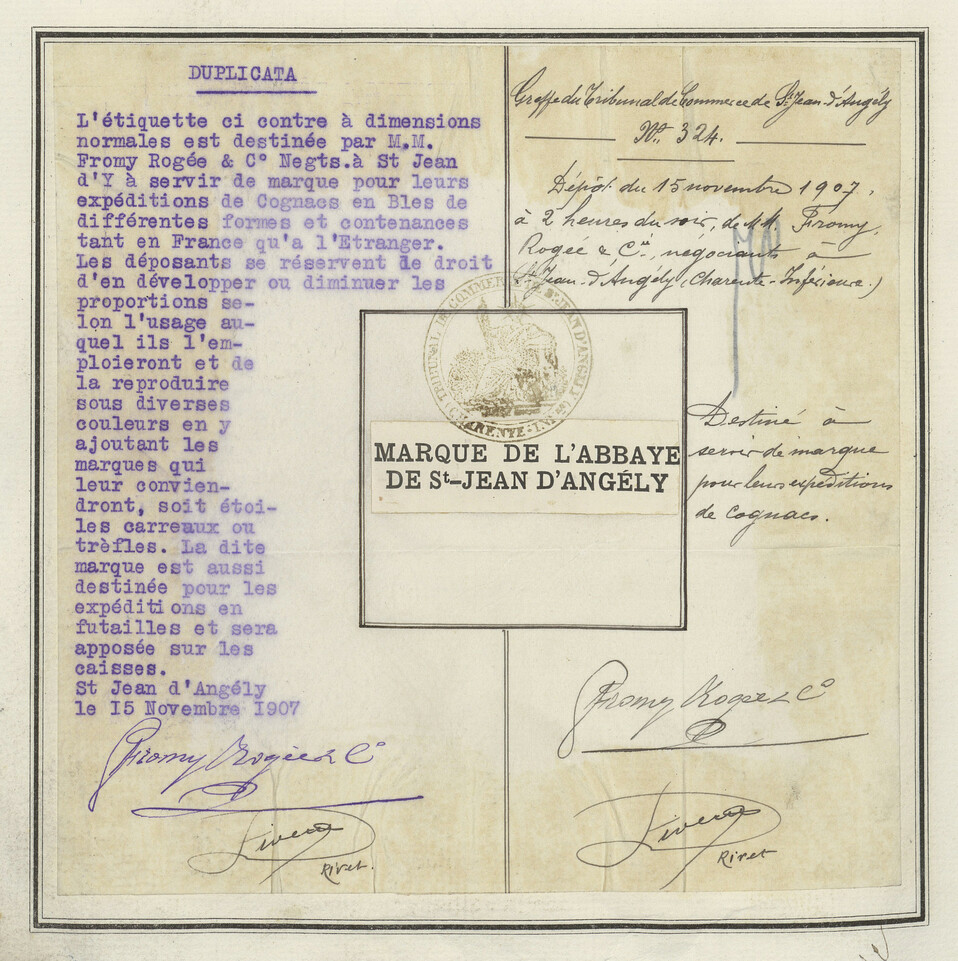 DUPLICATA
L'étiquette ci contre à dimensions
normales est destinée par M.M.
Fromy Rogée & C° Negts.à St Jean
d'Y à servir de marque pour leurs
expéditions de Cognacs en Bles de
différentes formes et contenances
tant en France qu'a l'Etranger.
Les déposants se réservent le droit
d'en développer ou diminuer les
proportions se-
lon l'usage au-
quel ils l'em-
ploieront et de
la reproduire
sous diverses
couleurs en y
ajoutant les
marques qui
leur convien-
dront, soit étoi-
les carreaux ou
trèfles. La dite
marque est aussi
destinée pour les
expéditions en
futailles et sera
apposée sur les
caisses.
St Jean d'Angély
le 15 Novembre 1907
Fromy Rogée & C°
Rivet.
Greffe du Tribunal de Commerce de St Jean-d'Angély
No. 324.
Dépôt du 15 novembre 1907,
à 2 heures du soir, de MM. Fromy,
Rogée & Cie, négociants à
St Jean-d'Angély (Charente-Inférieure.)
TRIBUNAL DE COMMERCE DE ST JEAN D'ANGELY
(CHARENTE-INFRE)
MARQUE DE L'ABBAYE
DE St-JEAN D'ANGÉLY
Destiné à
servir de marque
pour leurs expéditions
de cognacs.
Fromy Rogée & C°
Rivet